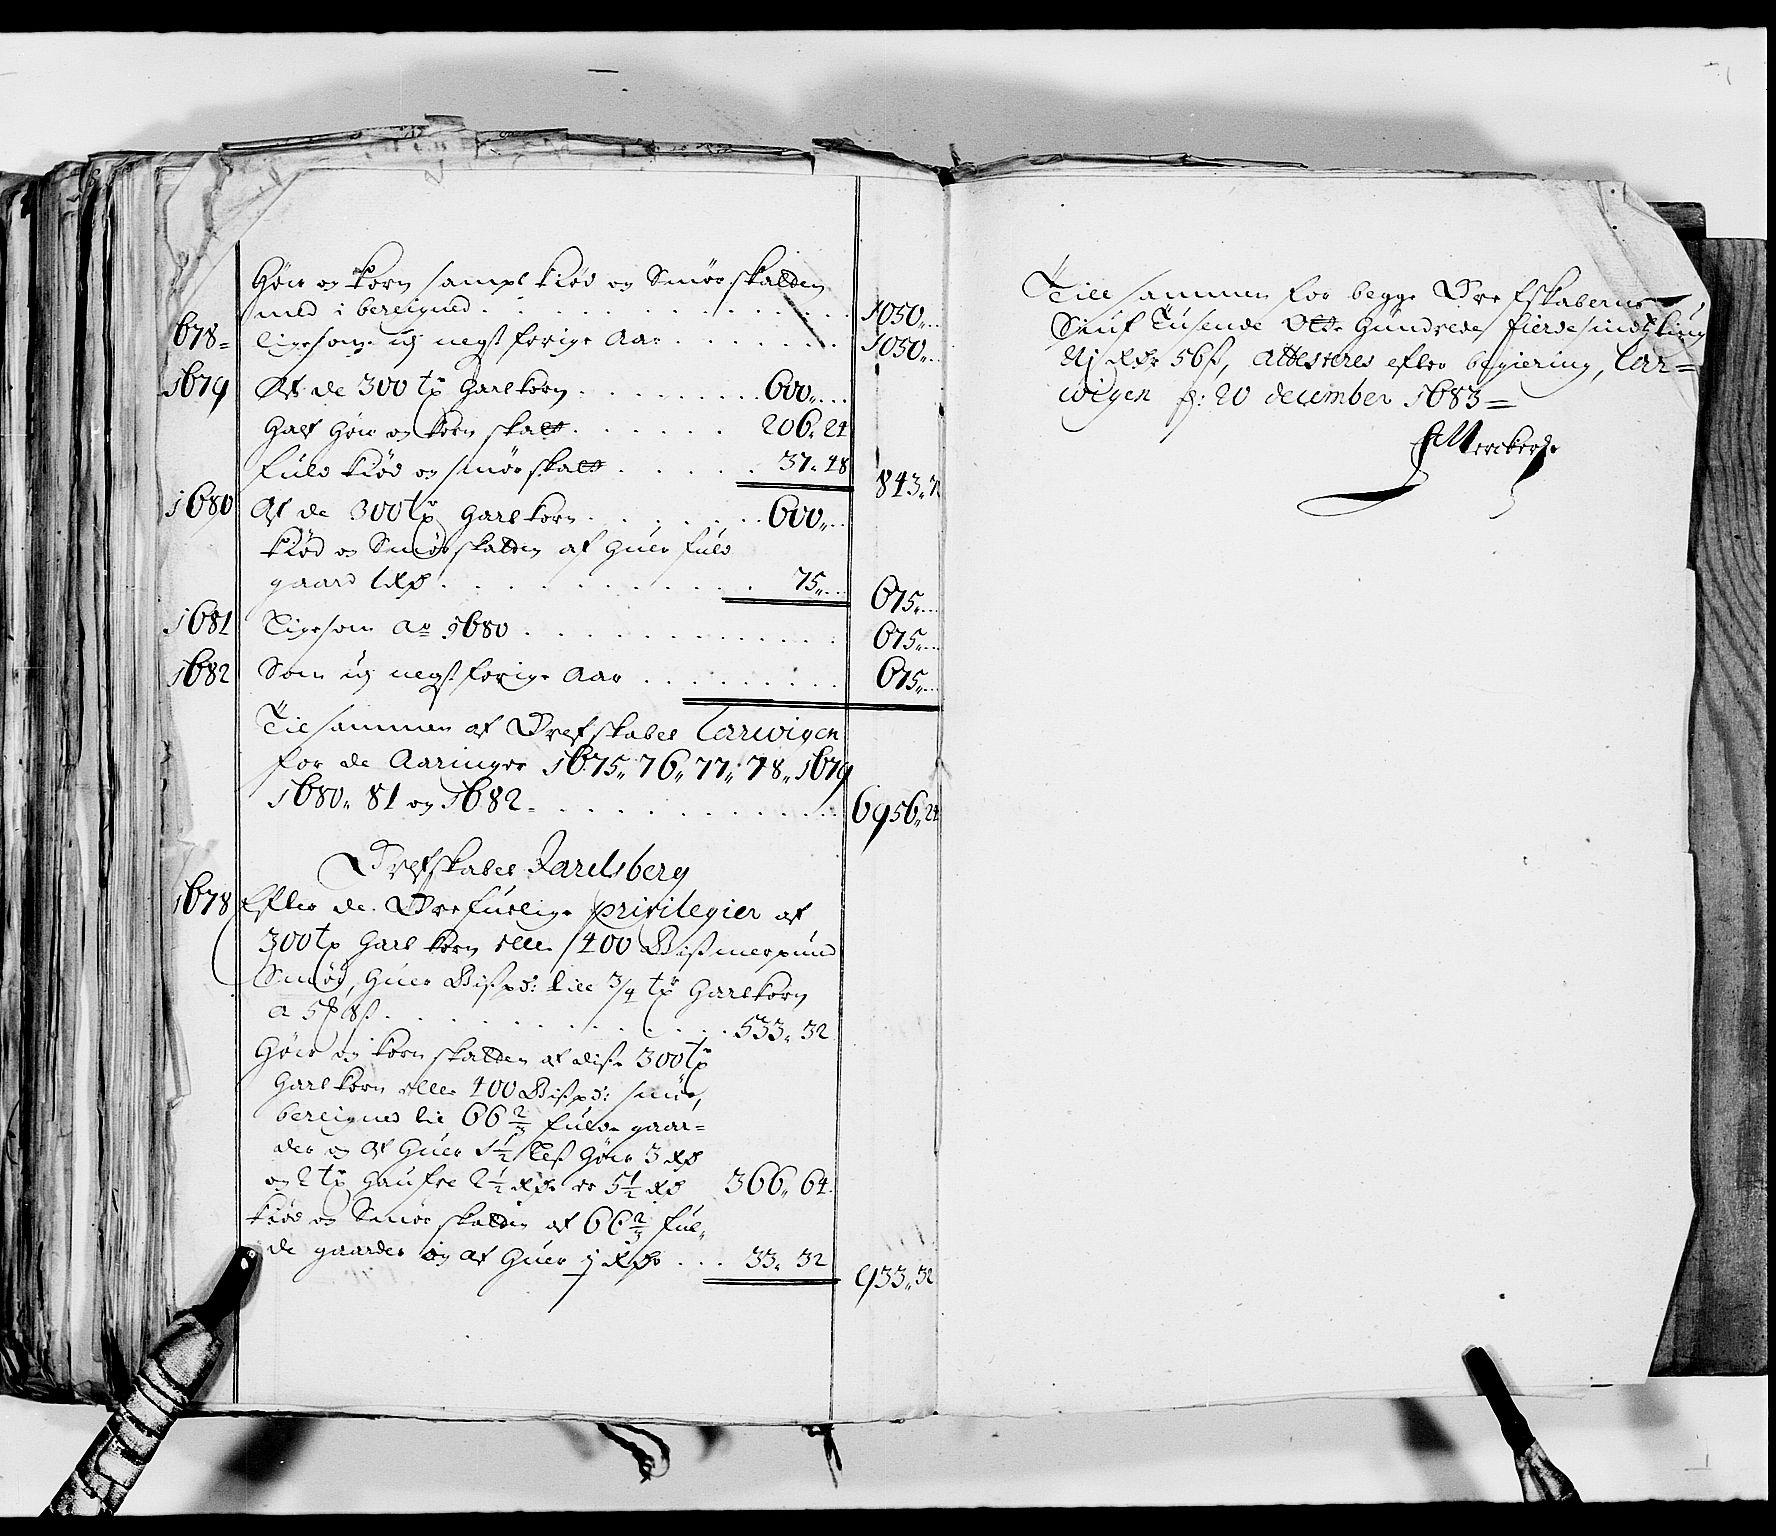 Høw og Korn sampt Kiød og Smørskatten
med i bereigned . . . 1050 „ ..
1678 = ligesom ug negst forige Aar . . . 1050 „ ..
1679 Af de 300 tr Hartkorn . . . 600 „ ..
Half Høw og Korn skatt . . . 206 „ 24
fuld Kiød og smørskatt . . . 37 „ 48
843 „ 72
1680 Af de 300 tr Hartkorn . . . 600 „ ..
Kiød og Smørskatten af huer fuld
gaard 1 Rdr . . . 75 „ ..
675 „ ..
1681 Ligesom Ao 1680 . . . 675 „ ..
1682 Som ug negst forige Aar . . . 675 „ ..
Tilsammen af Grefskabet Larwigen
for de Aaringer 1675 „ 76 „ 77 „ 78 „ 1679
1680 „ 81 og 1682 = . . . 6956 „ 24
Grefskabet Jarelsberg
1678 Efter de Grefuelige privilegier af
300 tr Hartkorn eller 400 Bismerpund
Smør, huer Bispd: till 3/4 tr Hartkorn
a 5 8 ß . . . 533 „ 32
Høw og Korn skatten af disse 300 tr
Hartkorn eller 400 Bispd: smør,
bereigned til 66 2/3 fulde gaar=
der og af huer 1 1/2 Less Høw 3 Rdr
og 2 tr Haufre 2 1/2 Rdr er 5 1/2 Rdr 366 „ 64
Kiød og Smør skatten af 66 2/3 ful=
de gaarder og af huer j Rdr . . . 33 „ 32
933 „ 32
Till sammen for begge Grefskaberne,
Siuf Tusende Otte Hundrede fiersindstiufe
Nj Rdr 56 ß, Attesteres efter begiering, Lar=
wigen d: 20 december 1683 =